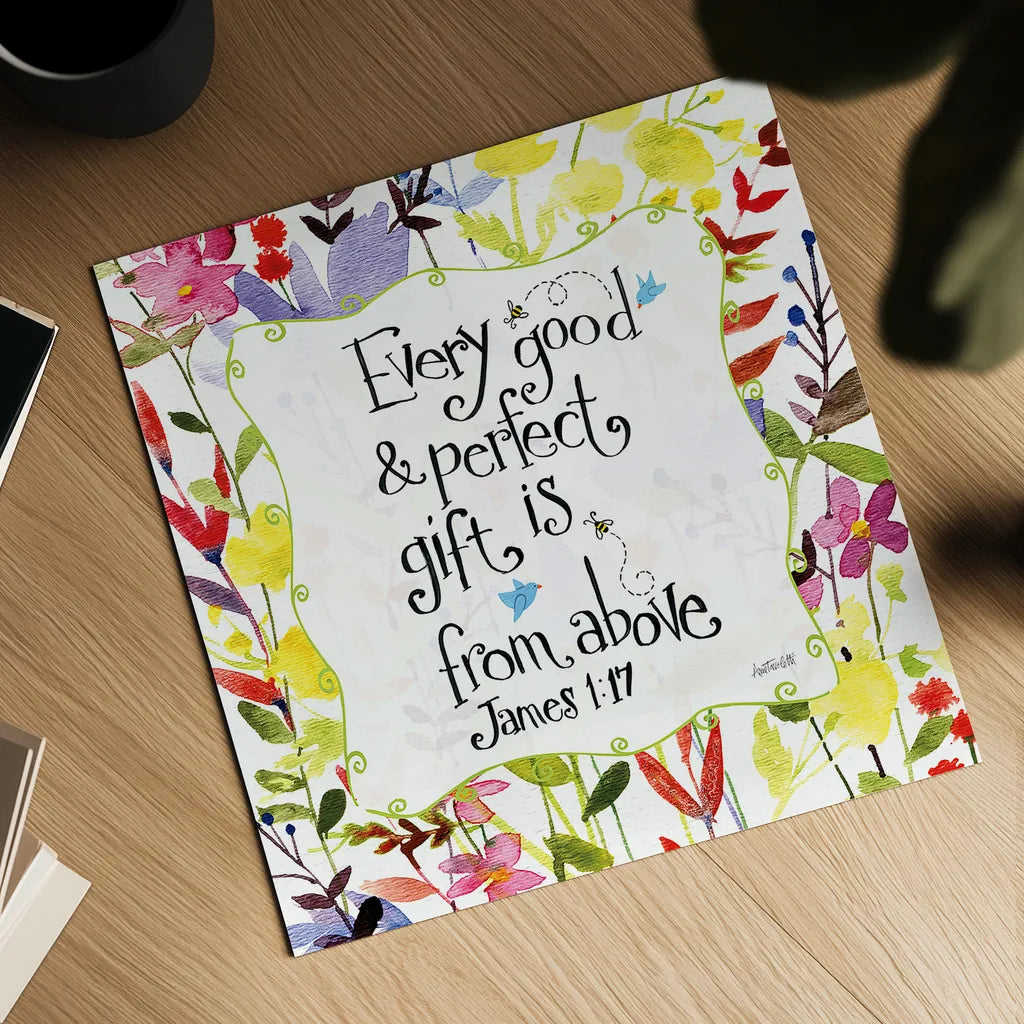 Every good
& perfect
gift is
from above
James 1:17